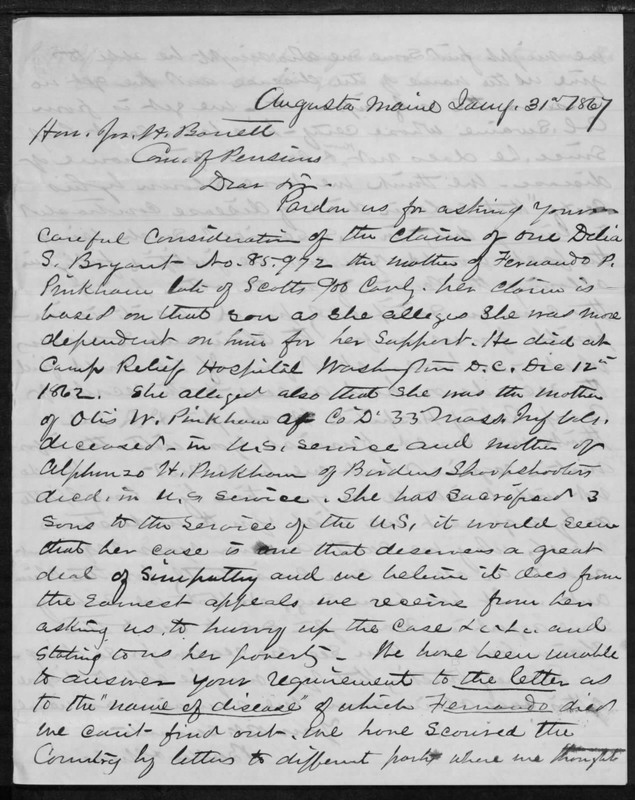 Augusta Maine Jany. 31st 1867
Hon. Jos. H. Barrett
Com. of Pensions
Dear Sir
Pardon us for asking your
Careful Consideration of the Claim of one Delia
S. Bryant No. 85.972 the mother of Fernando P.
Pinkham late of Scotts 900 Cavly. her claim is
based on that son as she alleges she was more
dependent on him for her Support. He died at
Camp Relief Hospital Washington D.C. Dec 12th
1862. She alleged also that she was the mother
of Otis W. Pinkham of Co "D" 33" Mass. Inf Vols.
deceased in U.S. Service and mother of
Alphonzo H. Pinkham of Birdens Sharpshooters
died in U.S Service. She has Sacrificed 3
Sons to the Service of the U.S, it would seem
that her case is one that deserves a great
deal of Simpathy and we believe it does from
the Earnest appeals we receive from her
asking us to hurry up the case &c &c and
Stating to us her poverty - We have been unable
to answer your requirement to the letter as
to the "name of disease" of which Fernando died
we can't find out. We have Scoured the
Country by letters to different parts where we thought